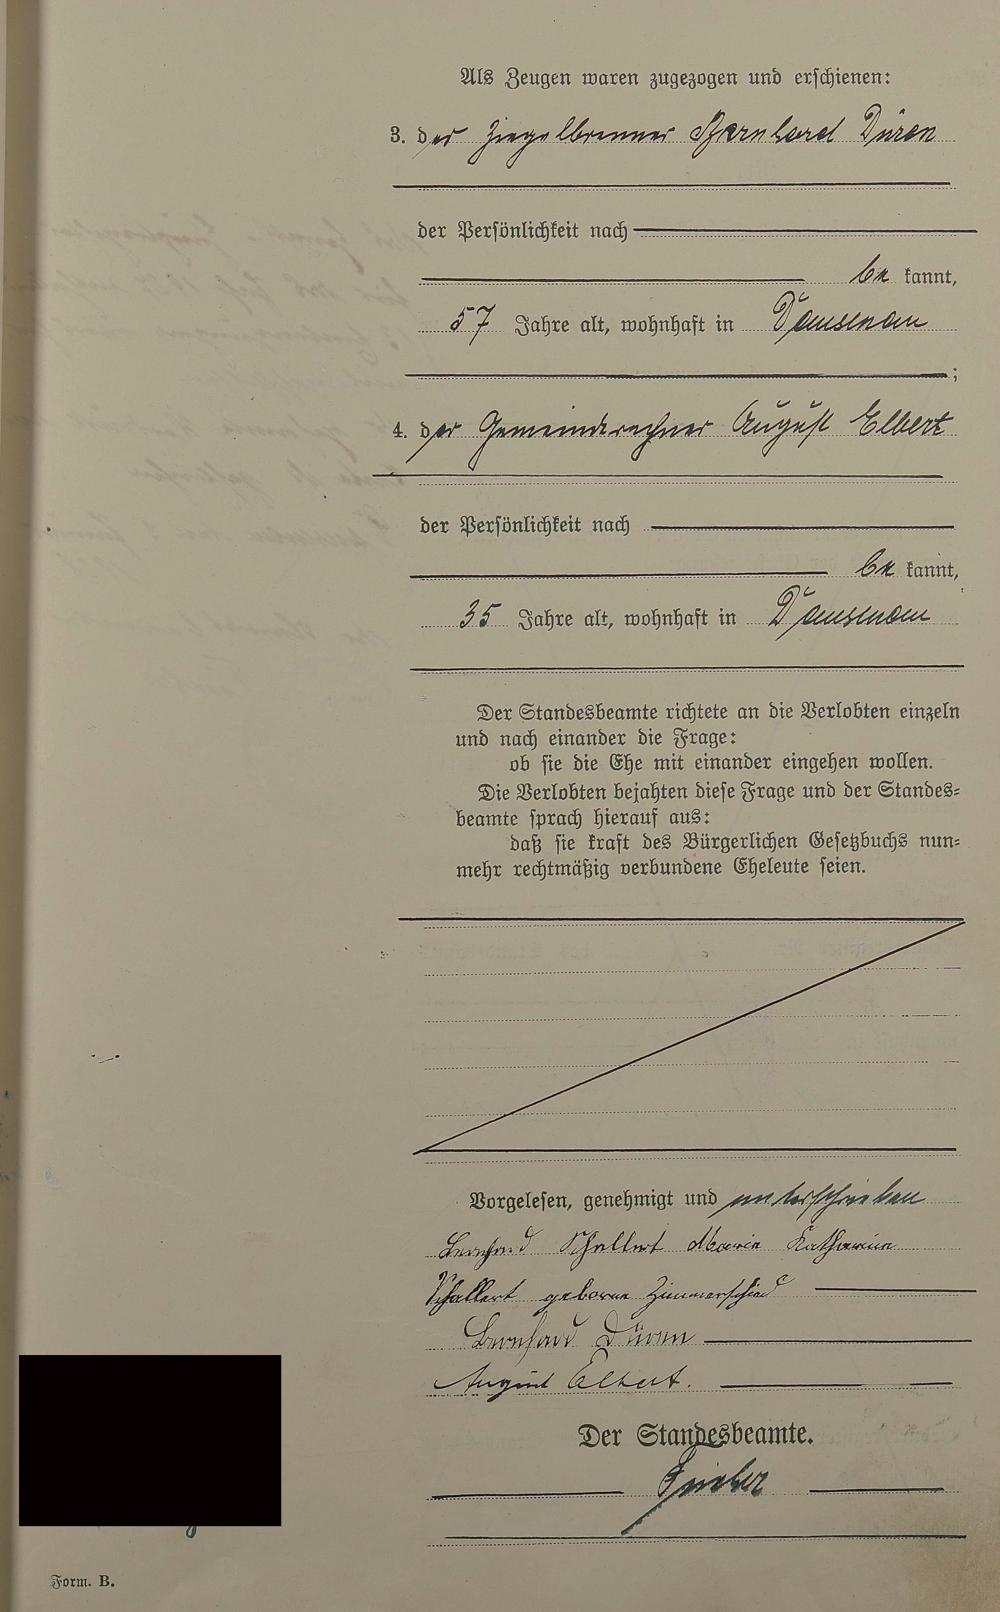 Als Zeugen waren zugezogen und erschienen:
3. der Ziegelbrenner Bernhard Düren
der Persönlichkeit nach
be kannt,
57 Jahre alt, wohnhaft in Dausenau
;
4. der Gemeinderechner August Elbert
der Persönlichkeit nach
be kannt,
35 Jahre alt, wohnhaft in Dausenau
Der Standesbeamte richtete an die Verlobten einzeln
und nach einander die Frage:
ob sie die Ehe mit einander eingehen wollen.
Die Verlobten bejahten diese Frage und der Standes=
beamte sprach hierauf aus:
daß sie kraft des Bürgerlichen Gesetzbuchs nun=
mehr rechtmäßig verbundene Eheleute seien.
Vorgelesen, genehmigt und unterschrieben
Bernhard Schallert Maria Katharina
Schallert geborne Zimmerschied
Bernhard Düren
August Elbert.
Der Standesbeamte.
Form. B.